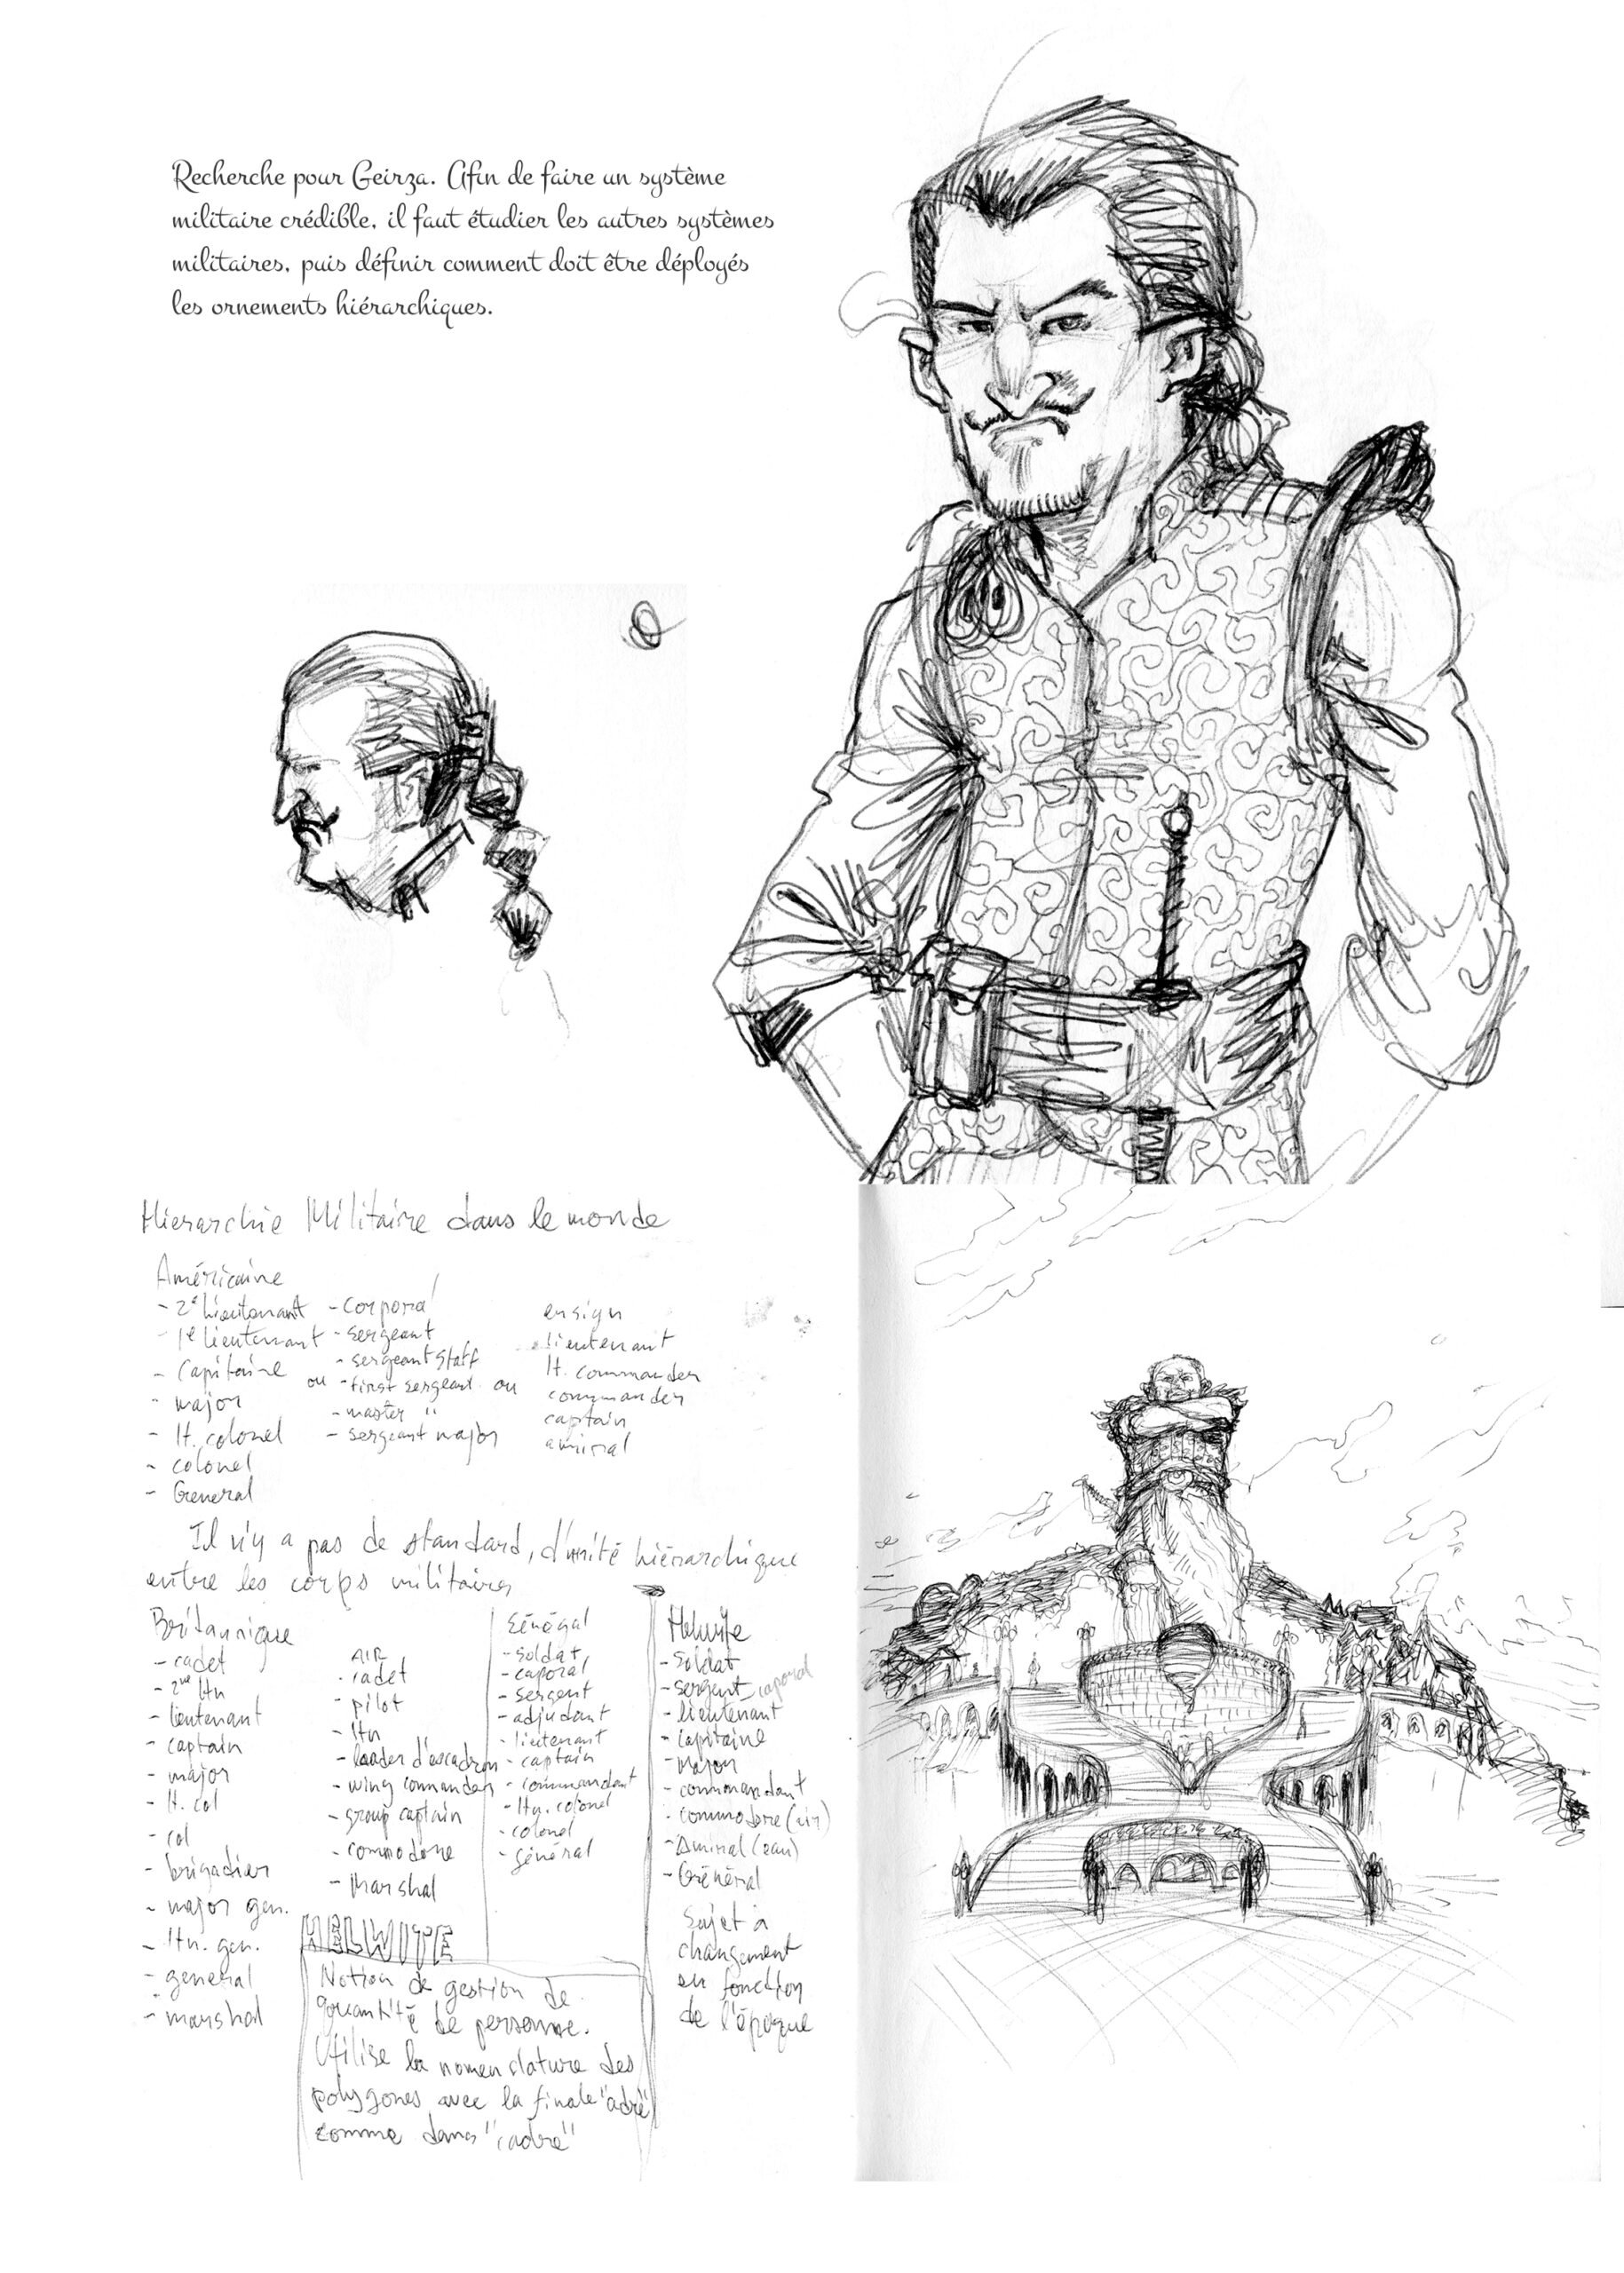 Recherche pour Geirza. Afin de faire un système
militaire crédible, il faut étudier les autres systèmes
militaires, puis définir comment doit être déployés
les ornements hiérarchiques.
Hierarchie Militaire dans le monde
Américaine
- 2e lieutenant
- 1e lieutenant
- Capitaine
- major
- lt. colonel
- colonel
- General
ou
- corporal
- sergeant
- sergeant staff
- first sergeant
- master "
- sergeant major
ou
ensign
lieutenant
lt. commander
commander
captain
amiral
Il n'y a pas de standard, d'unité hiérarchique
entre les corps militaires
Britannique
- cadet
- 2nd ltn
- lieutenant
- captain
- major
- lt. col
- col
- brigadier
- major gen.
- ltn. gen.
- general
- marshal
AIR
- cadet
- pilot
- ltn
- leader d'escadron
- wing commander
- group captain
- commodore
- marshal
Sénégal
- soldat
- caporal
- sergent
- adjudant
- lieutenant
- captain
- commandant
- ltn. colonel
- colonel
- général
Helwite
- soldat
- sergent - caporal
- lieutenant
- capitaine
- major
- commandant
- commodore (air)
- Amiral (eau)
- Général
Sujet à
changement
en fonction
de l'époque
HELWITE
Notion de gestion de
quantité de personne.
Utilise la nomenclature des
polygones avec la finale "adre"
comme dans "cadre"